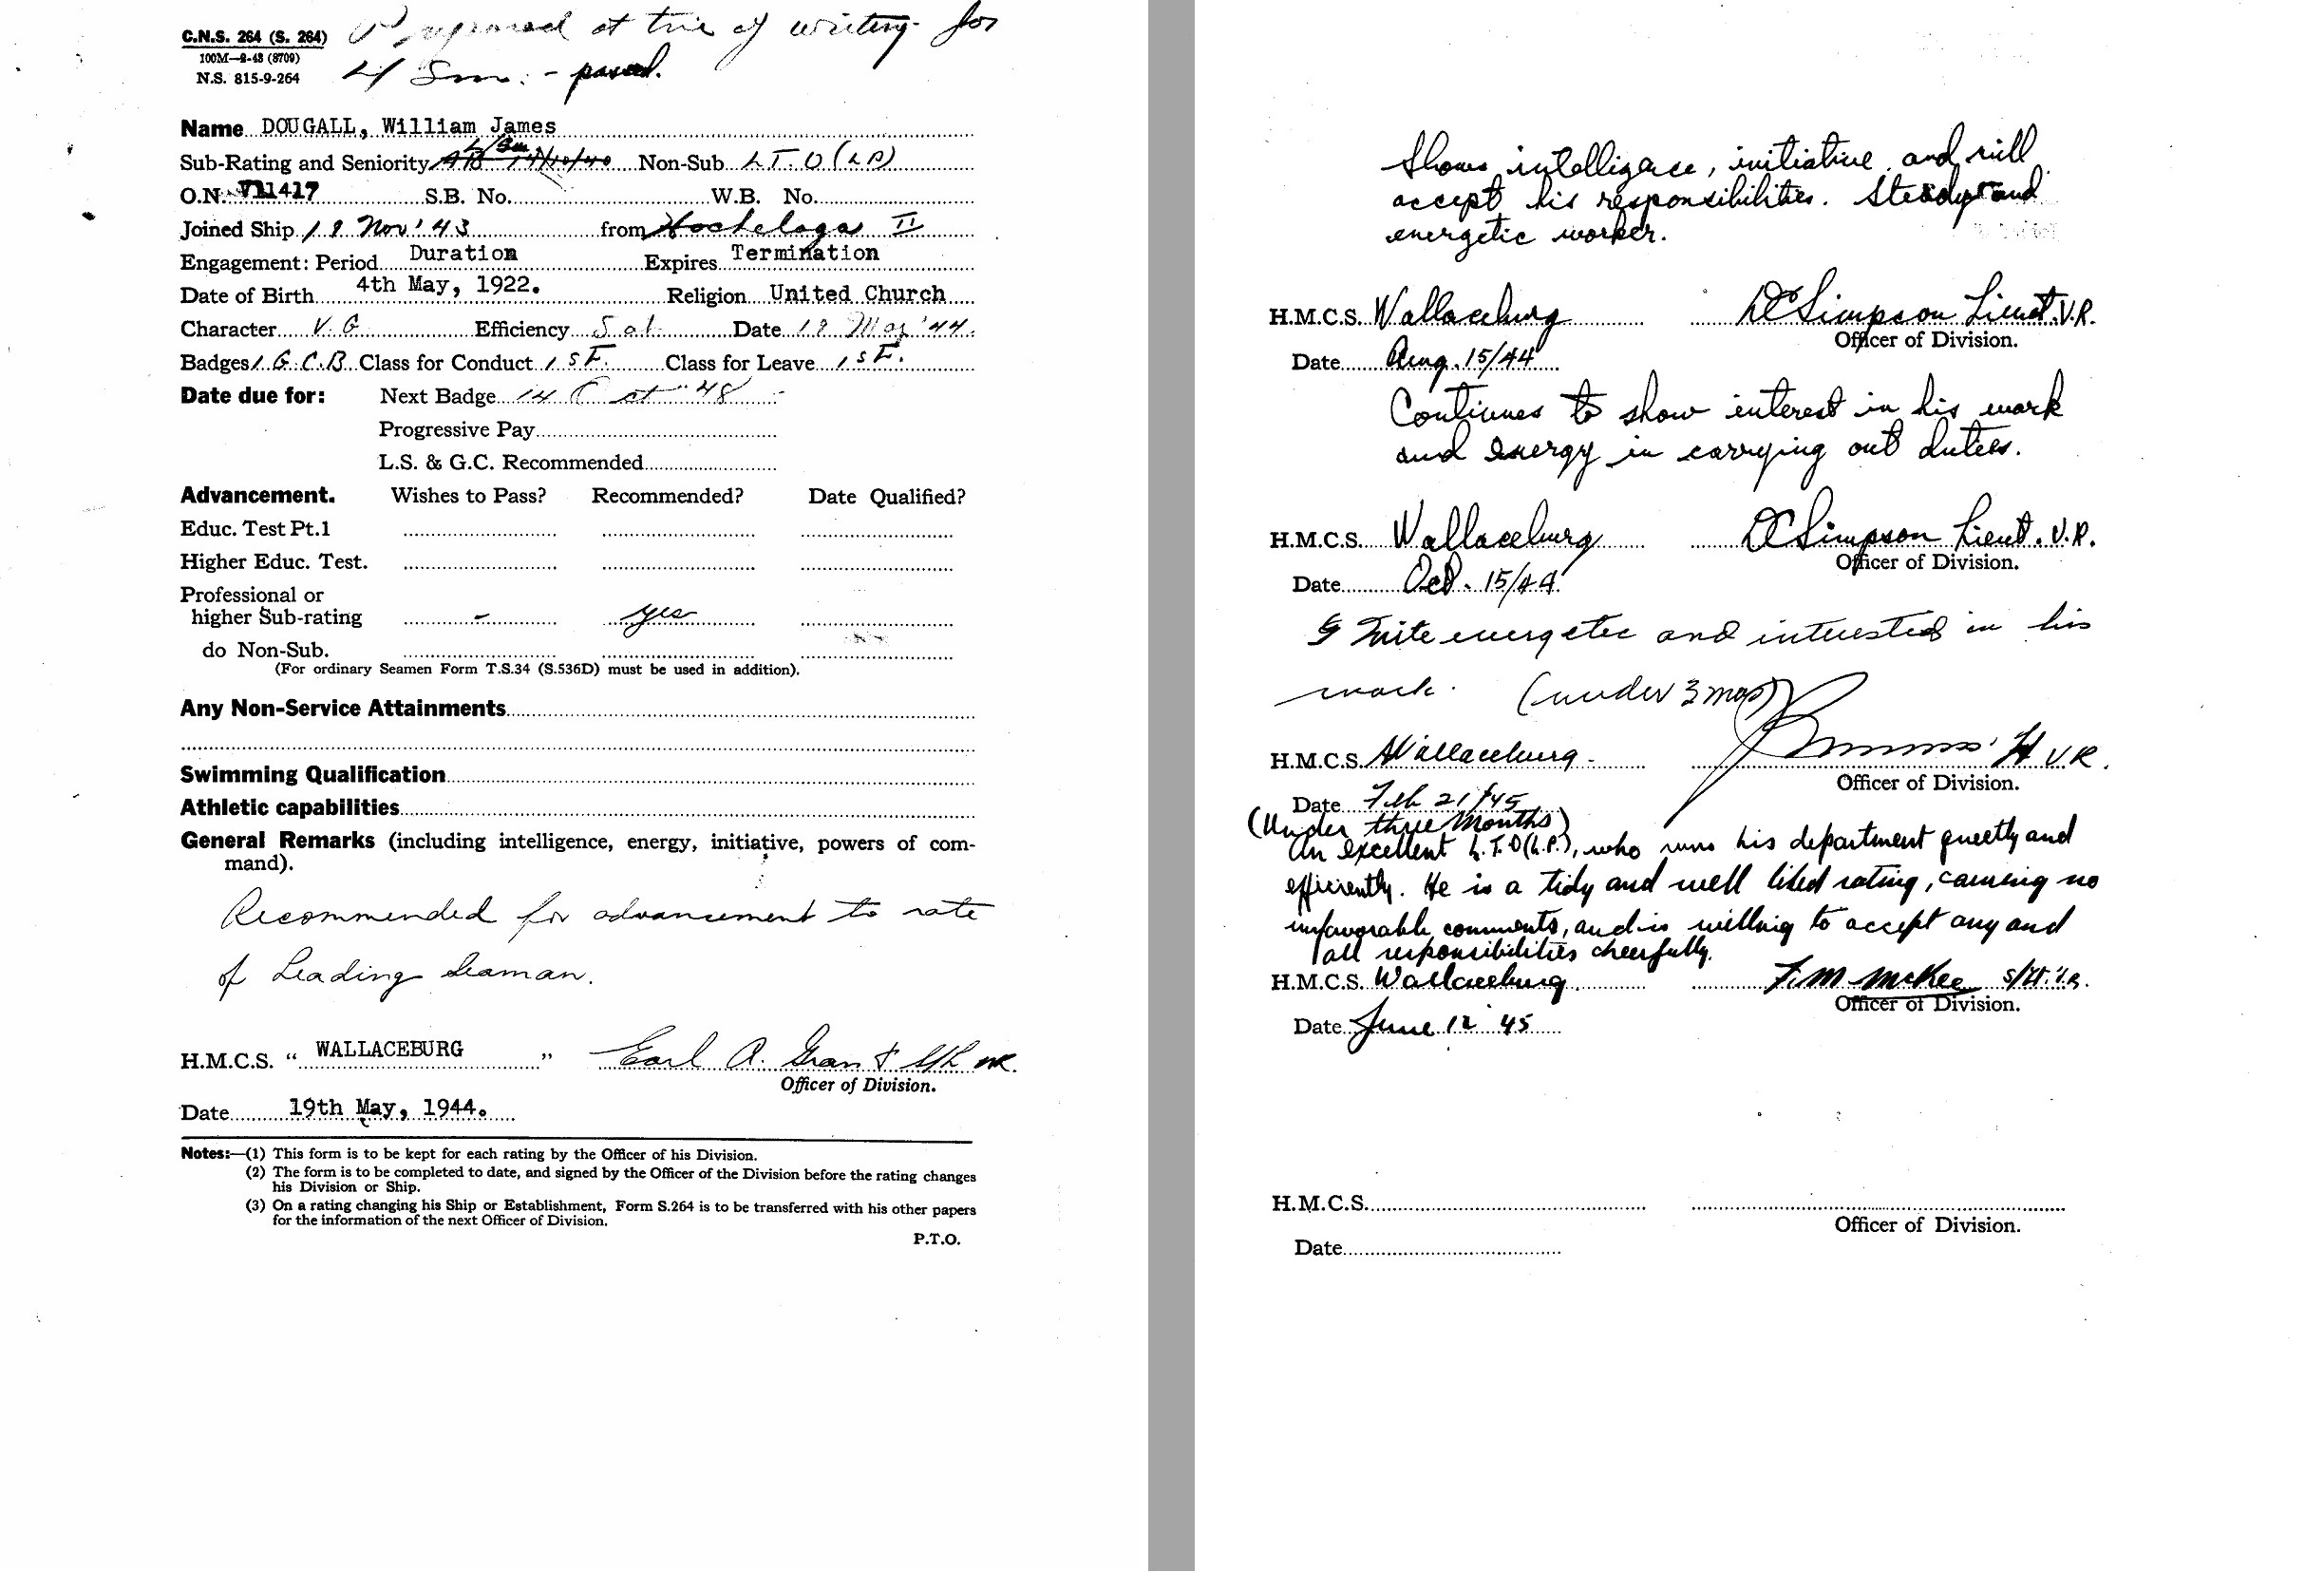 C.N.S. 264 (S. 264)
100M—2-43 (8709)
N.S. 815-9-264
at time of writing for
L/Sm. - passed.
Name DOUGALL, William James
Sub-Rating and Seniority AB 14/10/40 L/Sm Non-Sub. L.T.O (LP)
O.N. V11417 S.B. No. W.B. No.
Joined Ship 19 Nov' 43 from Hochelaga II
Engagement: Period Duration Expires Termination
Date of Birth 4th May, 1922. Religion United Church
Character V.G Efficiency Sat. Date 19 May '44.
Badges 1 G.C.B Class for Conduct 1st. Class for Leave 1st.
Date due for: Next Badge 14 Oct '48
Progressive Pay
L.S. & G.C. Recommended
Advancement. Wishes to Pass? Recommended? Date Qualified?
Educ. Test Pt.1
Higher Educ. Test.
Professional or
higher Sub-rating - yes
do Non-Sub.
(For ordinary Seamen Form T.S.34 (S.536D) must be used in addition).
Any Non-Service Attainments
Swimming Qualification
Athletic capabilities
General Remarks (including intelligence, energy, initiative, powers of com-
mand).
Recommended for advancement to rate
of Leading Seaman.
H.M.C.S. " WALLACEBURG " Earl A. Grant
Officer of Division.
Date 19th May, 1944.
Notes:—(1) This form is to be kept for each rating by the Officer of his Division.
(2) The form is to be completed to date, and signed by the Officer of the Division before the rating changes
his Division or Ship.
(3) On a rating changing his Ship or Establishment, Form S.264 is to be transferred with his other papers
for the information of the next Officer of Division.
P.T.O.
Shows intelligence, initiative and will
accept his responsibilities. Steady and
energetic worker.
H.M.C.S. Wallaceburg DC Simpson Lieut. V.R.
Officer of Division.
Date Aug. 15/44
Continues to show interest in his work
and energy in carrying out duties.
H.M.C.S. Wallaceburg DC Simpson Lieut. V.R.
Officer of Division.
Date Oct. 15/44
Quite energetic and interested in his
work. (under 3 mos)
H.M.C.S. Wallaceburg Lt V.R.
Officer of Division.
Date Feb 21/45
(Under three Months)
An excellent L.T.O(L.P.), who runs his department quietly and
efficiently. He is a tidy and well liked rating, causing no
unfavorable comments, and is willing to accept any and
all responsibilities cheerfully.
H.M.C.S. Wallaceburg F.M. McKee S/Lt. V.R.
Officer of Division.
Date June 12 '45
H.M.C.S.
Officer of Division.
Date